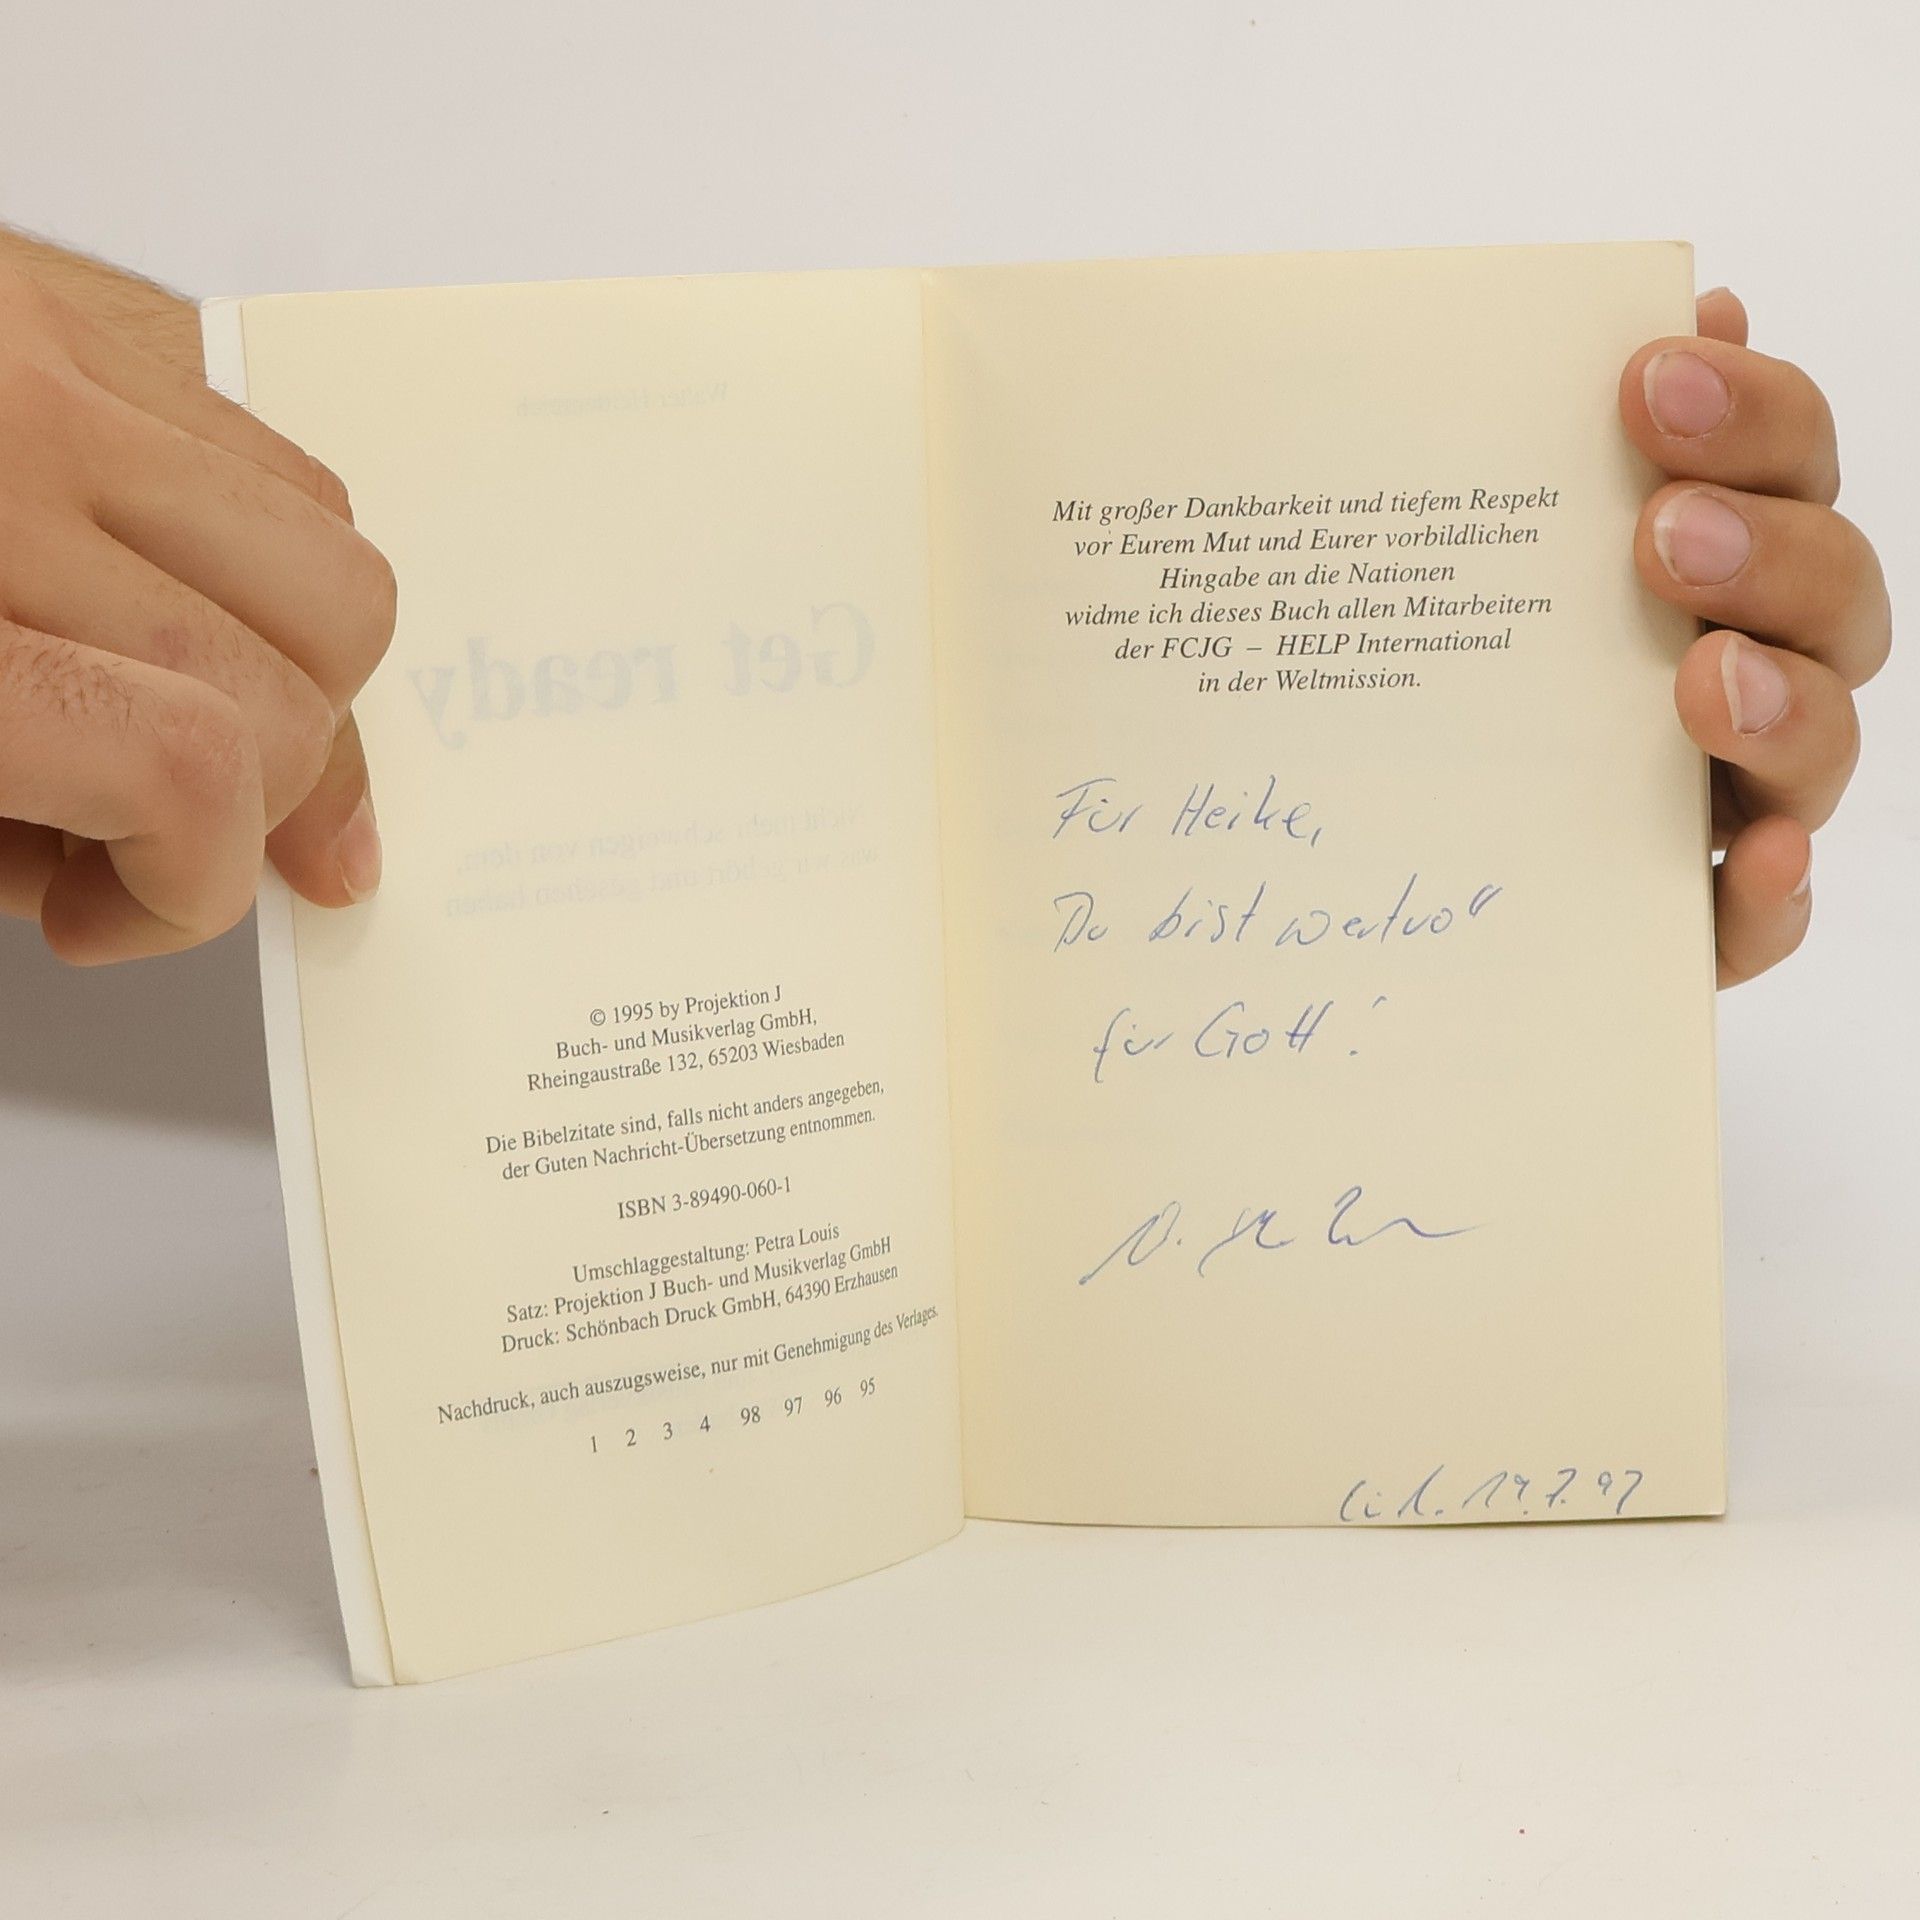 Get ready
Nicht mehr schweigen von dem,
was wir gehört und gesehen haben
© 1995 by Projektion J
Buch- und Musikverlag GmbH,
Rheingaustraße 132, 65203 Wiesbaden
Die Bibelzitate sind, falls nicht anders angegeben,
der Guten Nachricht-Übersetzung entnommen.
ISBN 3-89490-060-1
Umschlaggestaltung: Petra Louis
Satz: Projektion J Buch- und Musikverlag GmbH
Druck: Schönbach Druck GmbH, 64390 Erzhausen
Nachdruck, auch auszugsweise, nur mit Genehmigung des Verlages.
1 2 3 4 98 97 96 95
Mit großer Dankbarkeit und tiefem Respekt
vor Eurem Mut und Eurer vorbildlichen
Hingabe an die Nationen
widme ich dieses Buch allen Mitarbeitern
der FCJG – HELP International
in der Weltmission.
Für Heike,
Du bist wertvoll
für Gott!
19.7.97